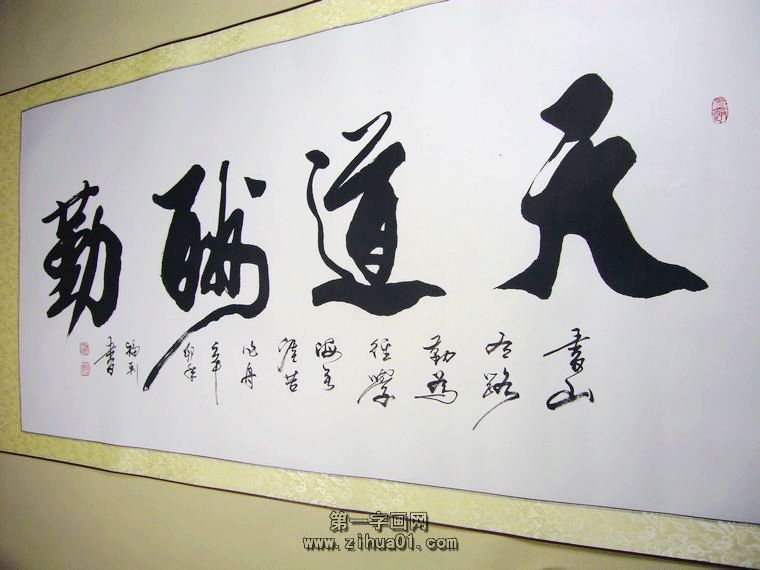 天道酬勤
書山
有路
勤為
徑學
海無
涯苦
作舟
辛卯年
福利
書
第一字画网
www.zihua01.com